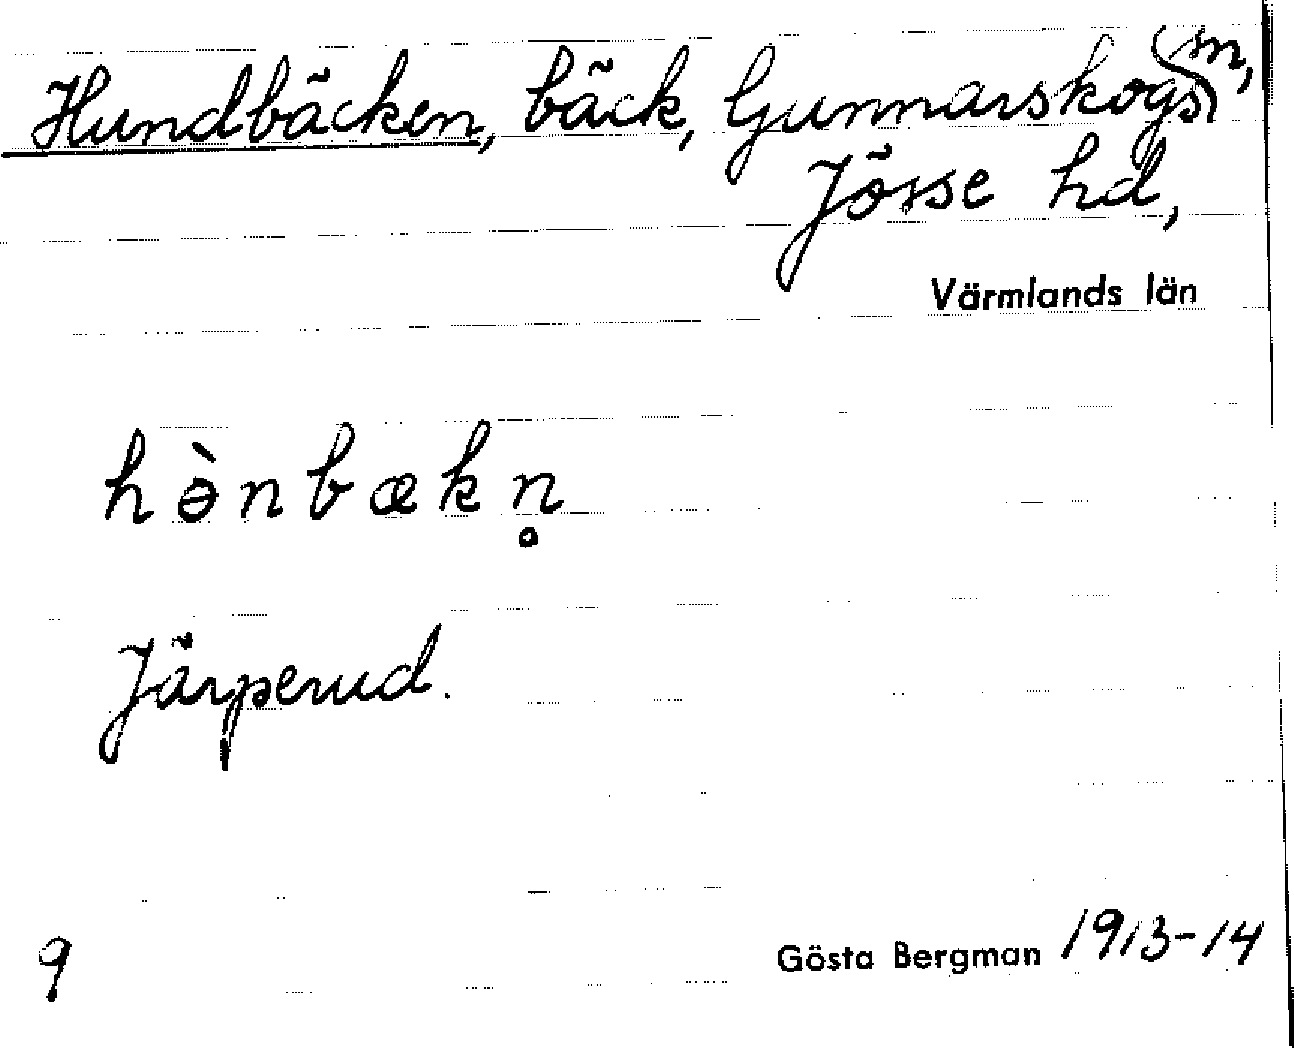 Hundbäcken, bäck, Gunnarskogs sn,
Jösse hd,
Värmlands län
hɵ̀nbækn̥
Järperud.
9
Gösta Bergman 1913-14